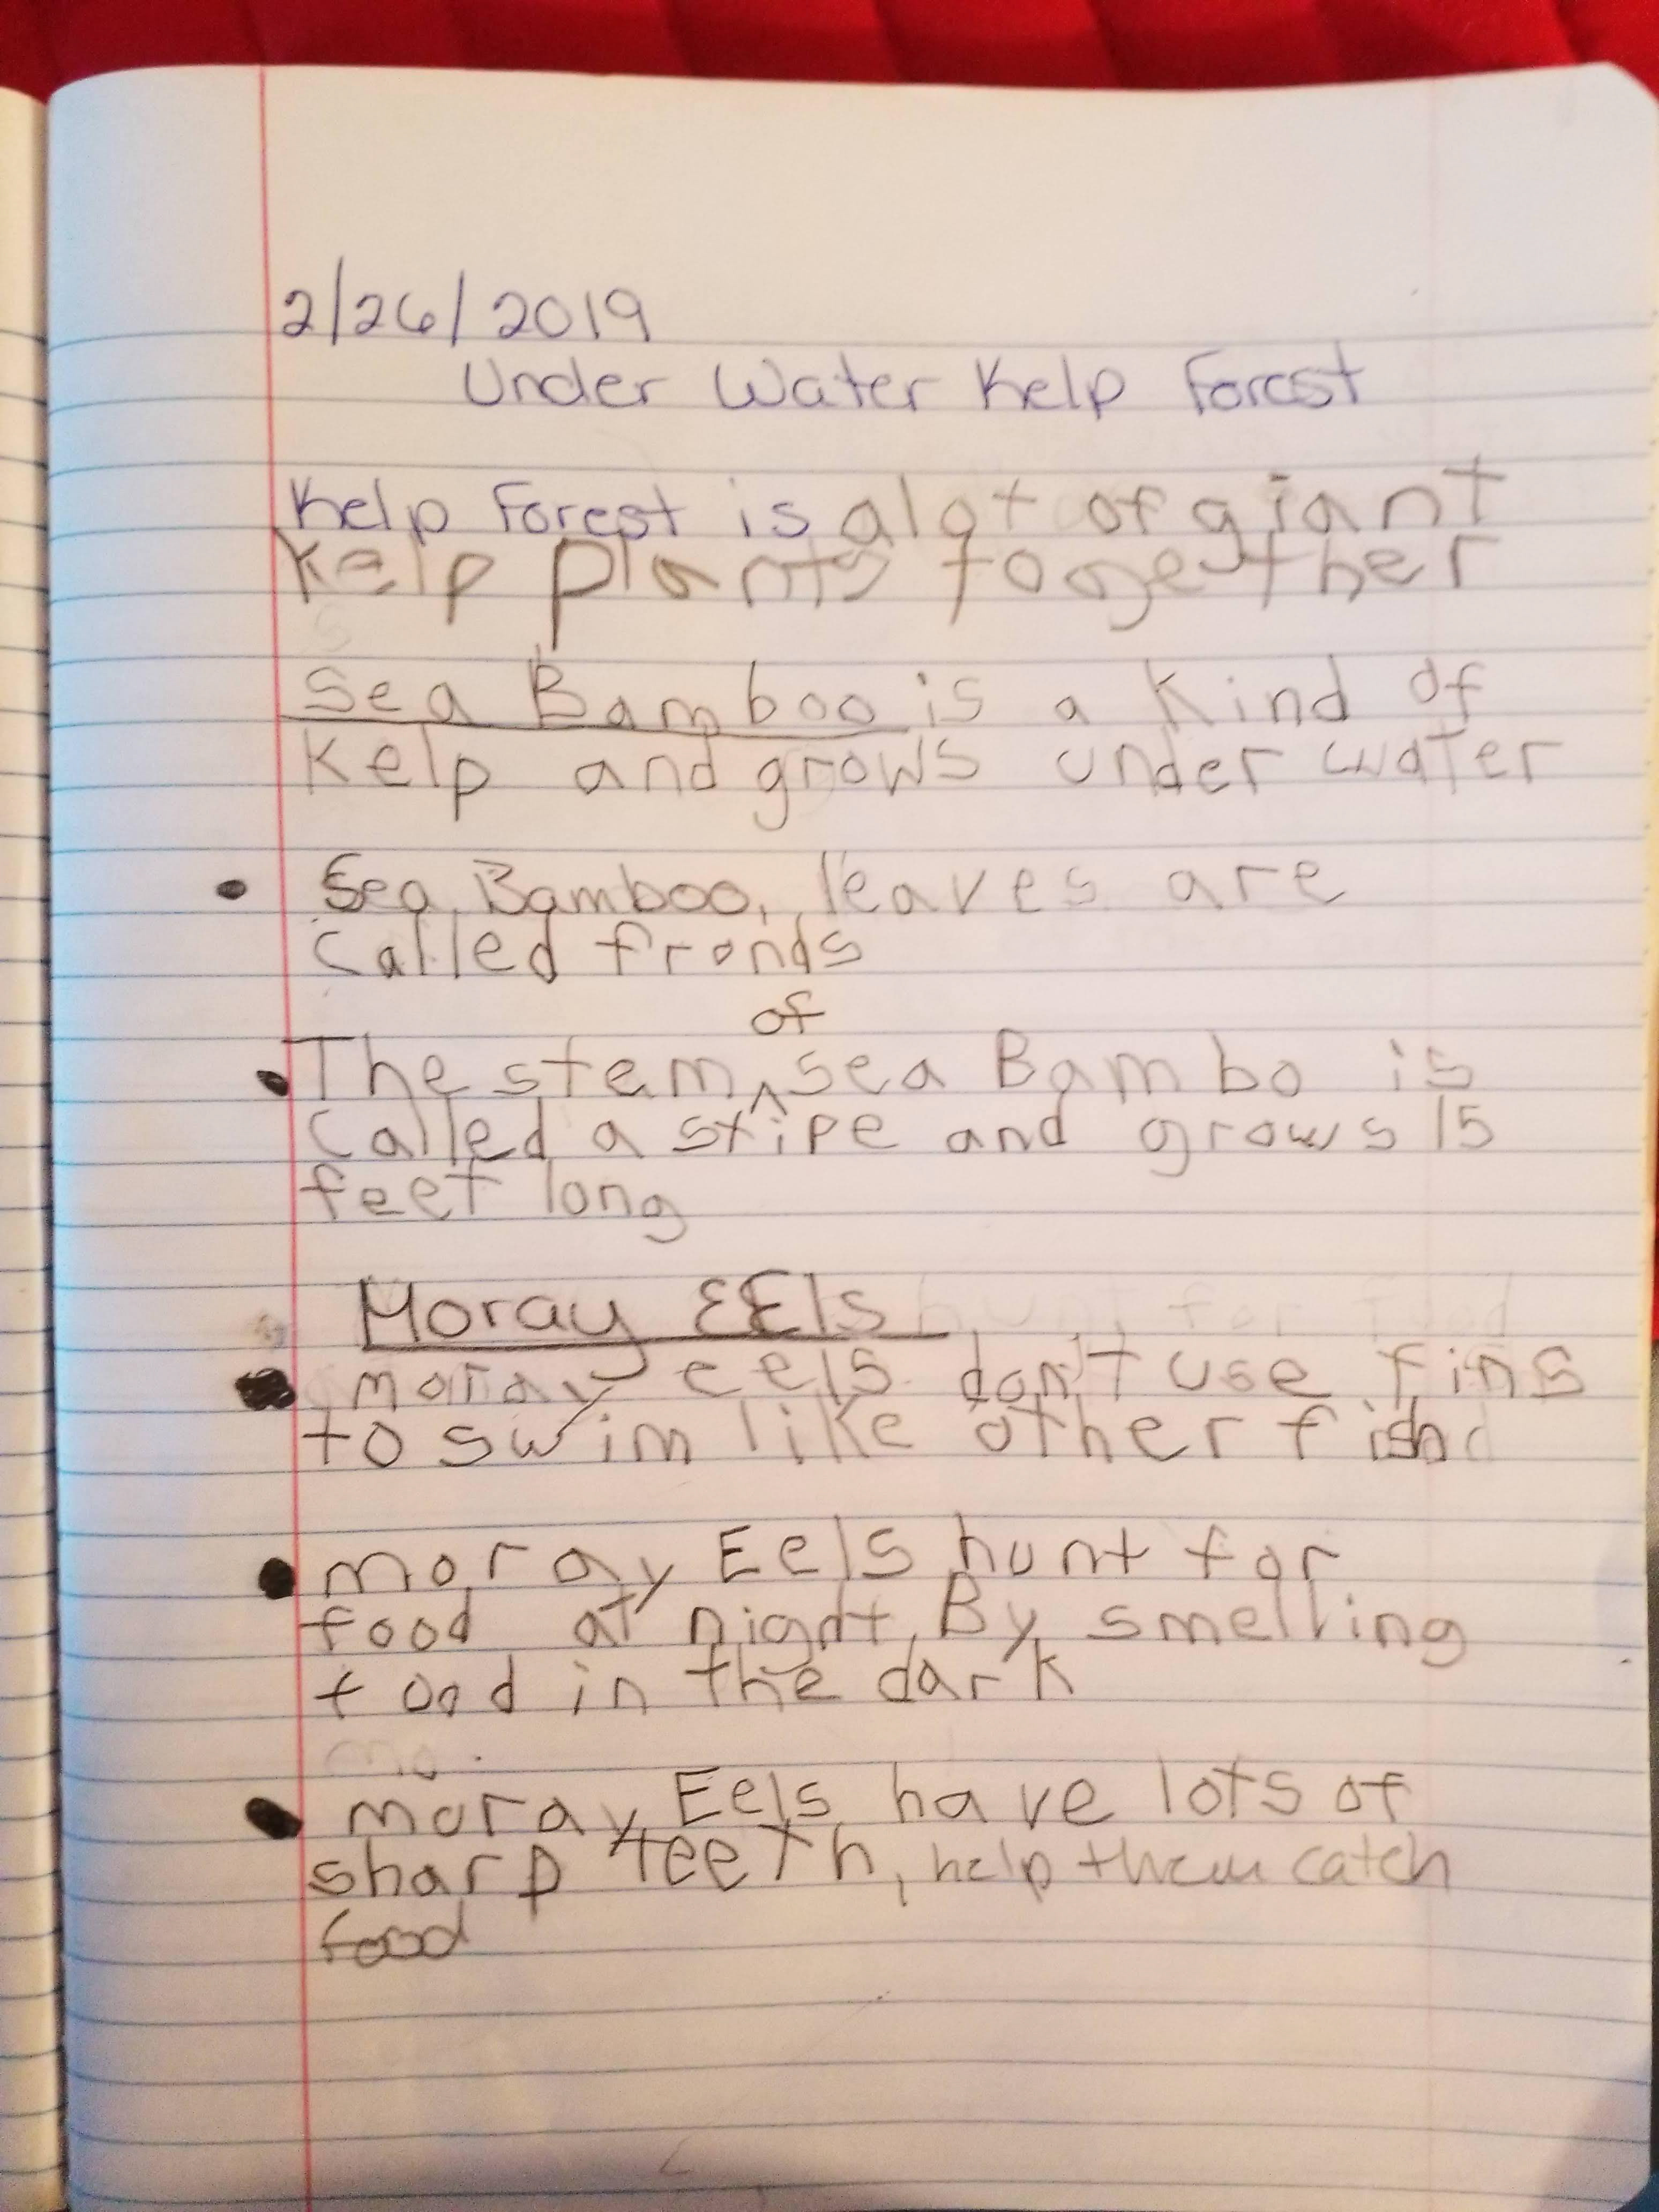 2/26/2019
Under Water Kelp Forest
Kelp Forest is alot of giant
Kelp plants together
Sea Bamboo is a kind of
Kelp and grows under water
• Sea Bamboo, leaves are
called fronds
of
• The stem ^ sea Bambo is
called a stipe and grows 15
feet long
Moray EEls hunt for food
• moray eels don't use fins
to swim like other fish
• moray Eels hunt for
food at night, By smelling
food in the dark
mo
• moray Eels have lots of
sharp teeth, help them catch
food